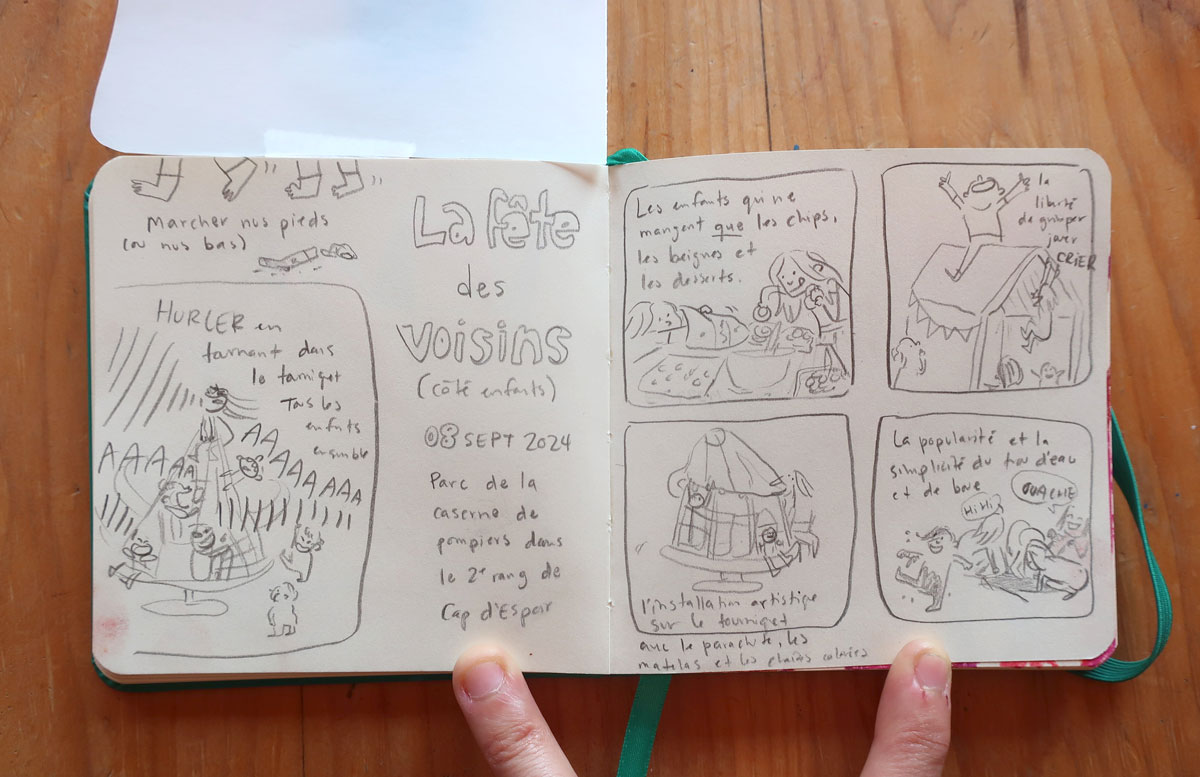 Marcher nus pieds
(ou nus bas)
HURLER en
tournant dans
le tourniquet
Tous les
enfants
ensemble
AAAAAA
AA
AAAAAA
La fête
des
voisins
(côté enfants)
08 SEPT 2024
Parc de la
caserne de
pompiers dans
le 2e rang de
Cap d'Espoir
Les enfants qui ne
mangent que les chips,
les beignes et
les desserts.
la
liberté
de grimper
jouer
CRIER
l'installation artistique
sur le tourniquet
avec le parachute, les
matelas et les plaids colorés
La popularité et la
simplicité du trou d'eau
et de boue
HiHi
OUACHE